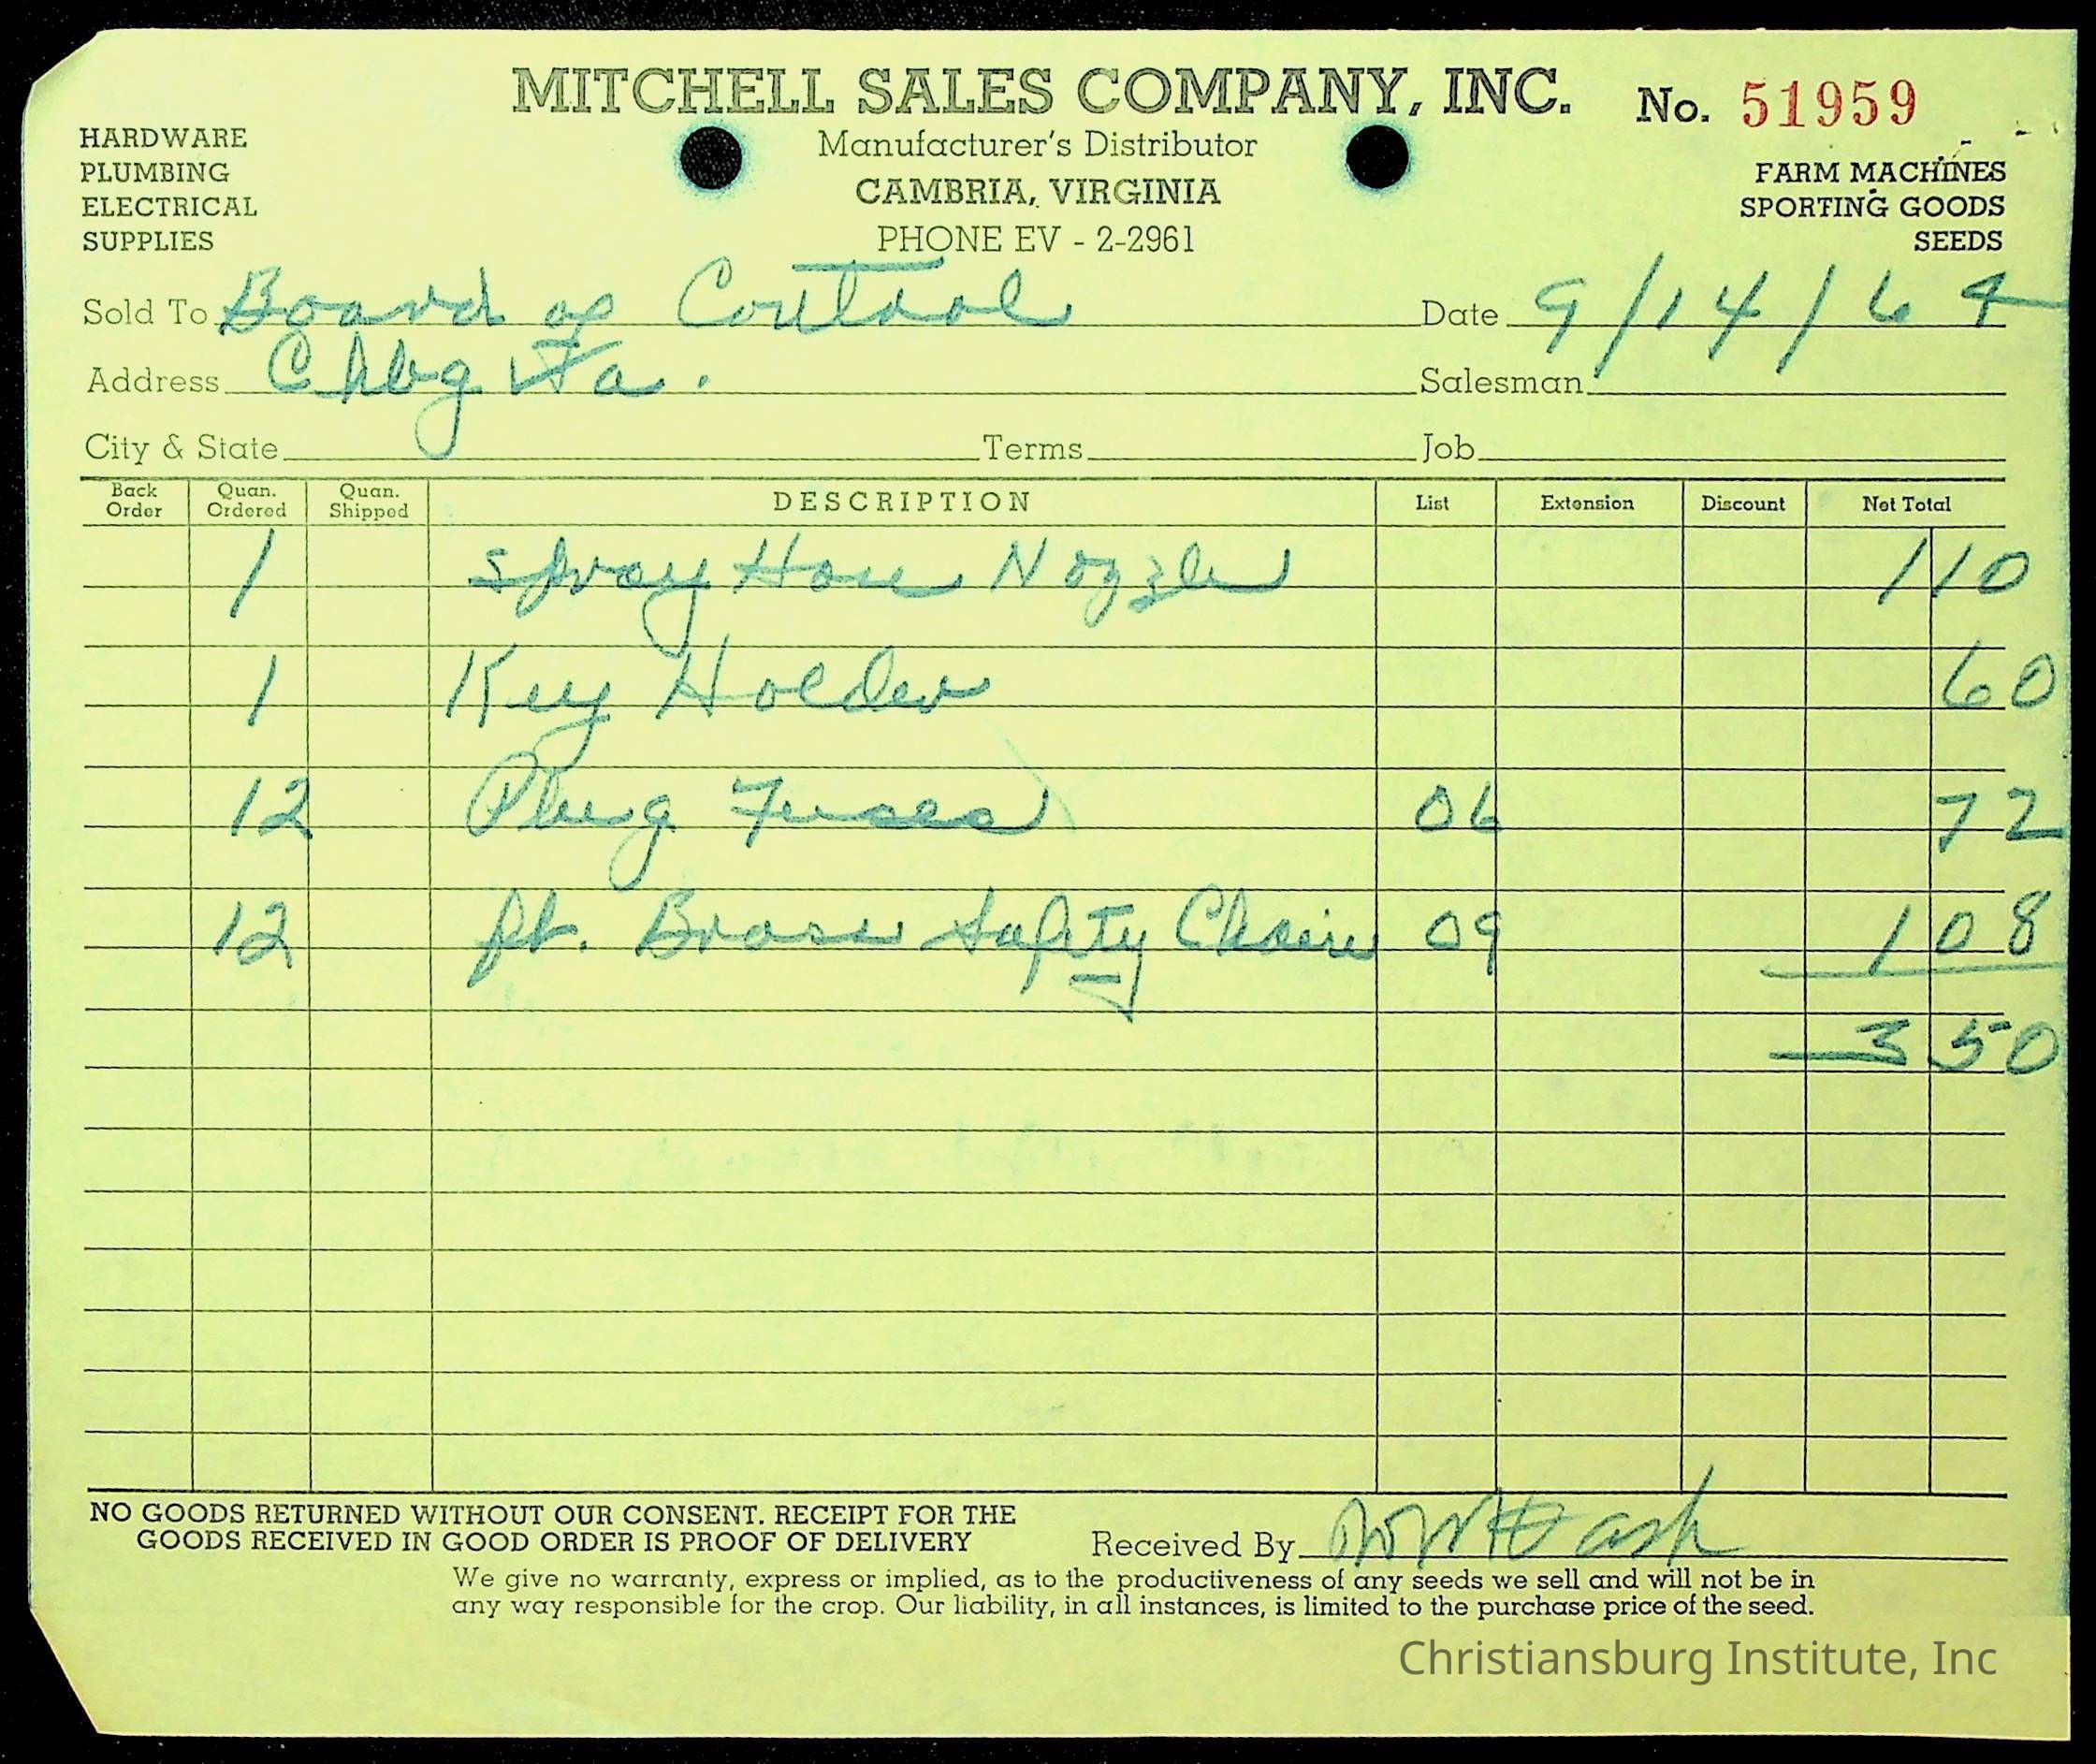 MITCHELL SALES COMPANY, INC.
No. 51959
HARDWARE
PLUMBING
ELECTRICAL
SUPPLIES
Manufacturer's Distributor
CAMBRIA, VIRGINIA
PHONE EV - 2-2961
FARM MACHINES
SPORTING GOODS
SEEDS
Sold To Board of Control Date 9/14/64
Address Chbg Va. Salesman
City & State Terms Job
Back Order Quan. Ordered Quan. Shipped DESCRIPTION List Extension Discount Net Total
1 Spray Hose Nozzle 1 10
1 Key Holder 60
12 Plug Fuses 06 72
12 ft. Brass Safty Chain 09 1 08
3 50
NO GOODS RETURNED WITHOUT OUR CONSENT. RECEIPT FOR THE
GOODS RECEIVED IN GOOD ORDER IS PROOF OF DELIVERY
Received By
We give no warranty, express or implied, as to the productiveness of any seeds we sell and will not be in
any way responsible for the crop. Our liability, in all instances, is limited to the purchase price of the seed.
Christiansburg Institute, Inc